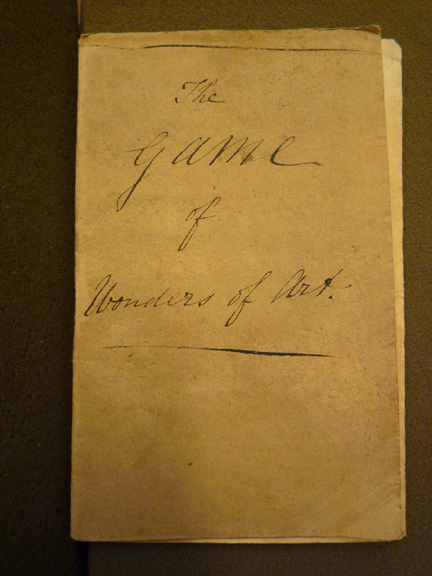 The
Game
of
Wonders of Art.